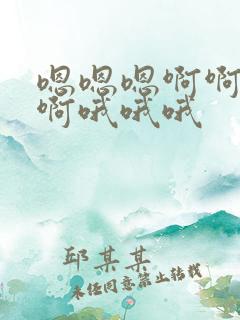 嗯嗯嗯啊啊
啊哦哦哦
邱某某
未经同意禁止转载